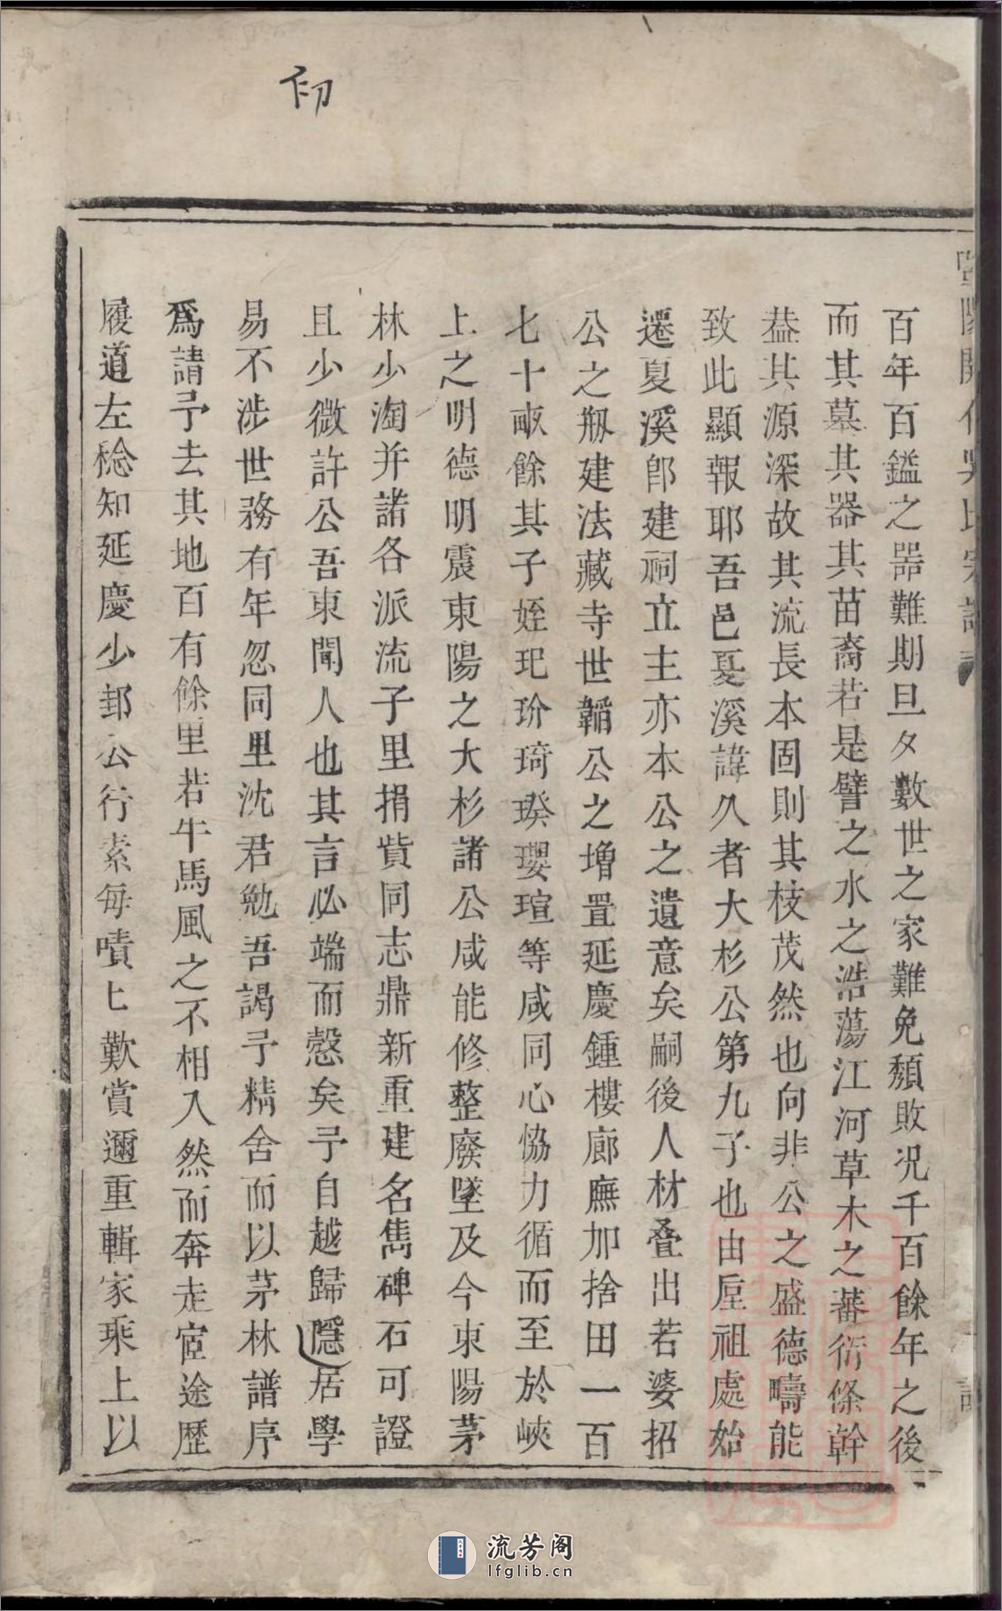 百年百鎰之器難期旦夕數世之家難免頹敗况千百餘年之後
而其墓其器其苗裔若是譬之水之浩蕩江河草木之蕃衍條幹
葢其源深故其流長本固則其枝茂然也向非公之盛德疇能
致此顯報耶吾邑夏溪諱久者大杉公第九子也由垕祖處始
遷夏溪卽建祠立主亦本公之遺意矣嗣後人材叠出若婆招
公之剏建法藏寺世韜公之增置延慶鍾樓廊廡加捨田一百
七十畝餘其子姪玘玠琦琝瓔瑄等咸同心恊力循而至於峽
上之明德明震東陽之大杉諸公咸能修整廢墜及今東陽茅
林少淘并諸各派流子里捐貲同志鼎新重建名雋碑石可證
且少微許公吾東聞人也其言必端而慤矣予自越歸隱居學
易不涉世務有年忽同里沈君勉吾謁予精舍而以茅林譜序
爲請予去其地百有餘里若牛馬風之不相入然而奔走宦途歷
履道左稔知延慶少邽公行素每嘖七歎賞邇重輯家乘上以
流芳阁
lfglib.cn